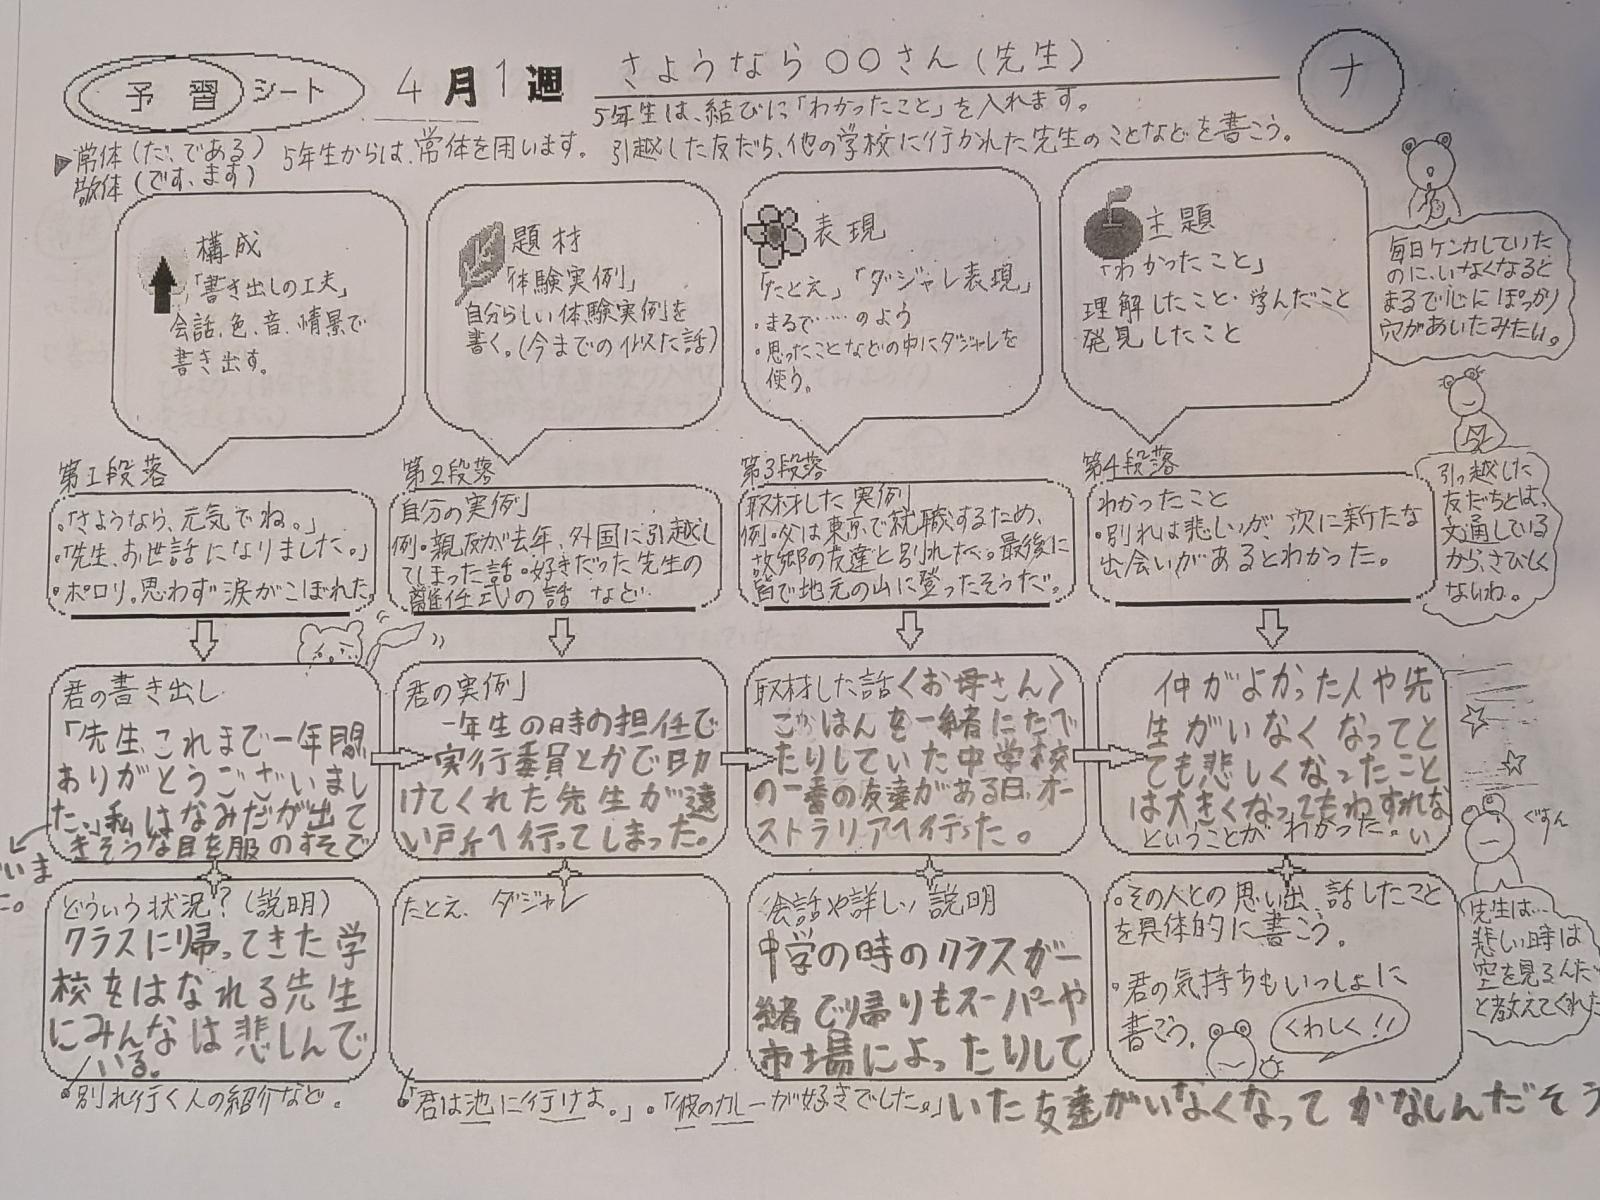 予習シート 4月1週 さようなら〇〇さん(先生) ナ
5年生は、結びに「わかったこと」を入れます。
▶常体(だ、である) 5年生からは、常体を用います。 引越した友だち、他の学校に行かれた先生のことなどを書こう。
敬体(です、ます)
構成
「書き出しの工夫」
会話、色、音、情景で
書き出す。
題材
「体験実例」
自分らしい体験実例を
書く。(今までの似た話)
表現
「たとえ」「ダジャレ表現」
・まるで……のよう
・思ったことなどの中にダジャレを
使う。
主題
「わかったこと」
理解したこと・学んだこと
発見したこと
毎日ケンカしていた
のに、いなくなると
まるで心にぽっかり
穴があいたみたい。
第1段落
・「さようなら、元気でね。」
・「先生、お世話になりました。」
・ポロリ。思わず涙がこぼれた
第2段落
自分の実例」
例・親友が去年、外国に引越し
てしまった話・好きだった先生の
離任式の話 など
第3段落
「取材した実例」
例・父は東京で就職するため、
故郷の友達と別れた。最後に
皆で地元の山に登ったそうだ。
第4段落
わかったこと
・別れは悲しいが、次に新たな
出会いがあるとわかった。
引っ越した
友だちとは、
文通している
から、さびしく
ないね。
君の書き出し
「先生、これまで一年間
ありがとうございまし
た。」私はなみだが出て
きそうな目を服のすそで
君の実例」
一年生の時の担任で
実行委員とかで助
けてくれた先生が遠
い戸斤へ行ってしまった。
取材した話〈お母さん〉
ごはんを一緒にたべ
たりしていた中学校
の一番の友達がある日、オー
ストラリアへ行った。
仲がよかった人や先
生がいなくなってと
ても悲しくなったこと
は大きくなってもわすれな
い
ということがわかった。
ぐすん
どういう状況?(説明)
クラスに帰ってきた学
校をはなれる先生
にみんなは悲しんで
いる。
・別れ行く人の紹介など。
たとえ、ダジャレ
・「君は池に行けよ。」・「彼のカレーが好きでした。」
会話や詳しい説明
中学の時のクラスが一
緒で帰りもスーパーや
市場によったりして
いた友達がいなくなってかなしんだそう
・その人との思い出、話したこと
を具体的に書こう。
・君の気持ちもいっしょに
書こう。
くわしく!!
先生は…
悲しい時は
空を見るんだ
と教えてくれた